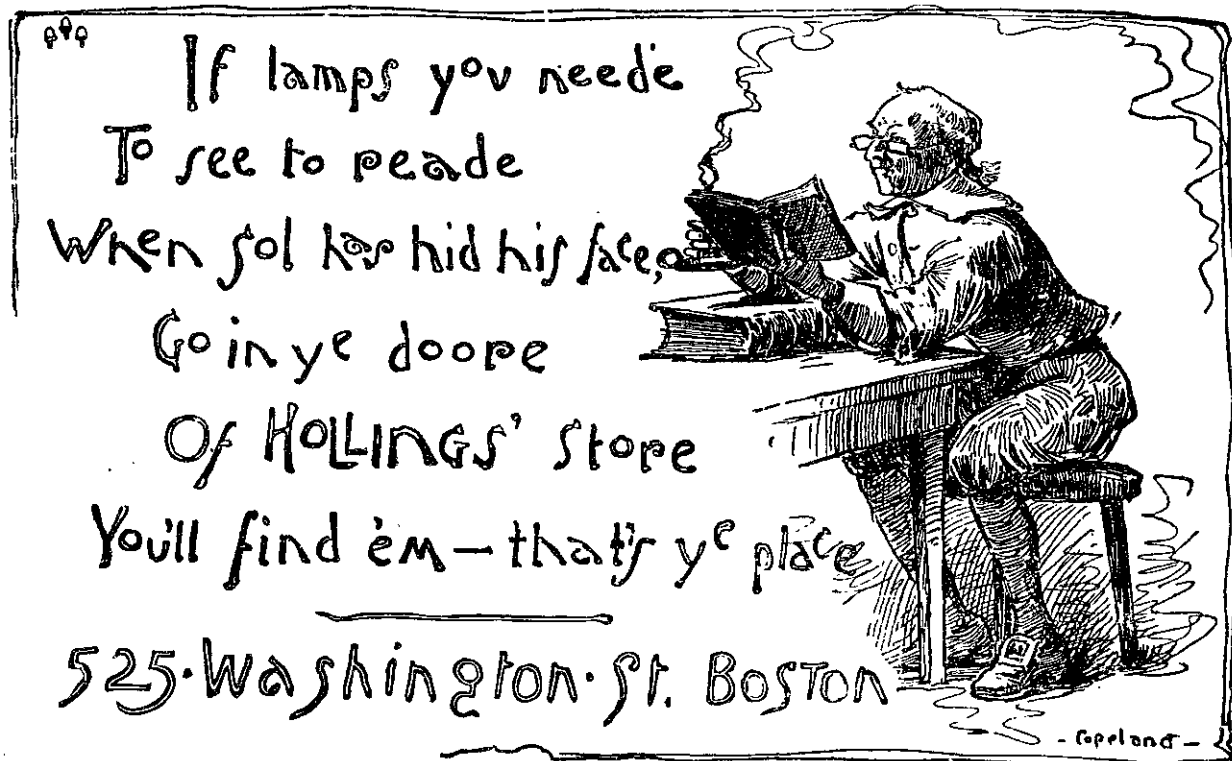 If lamps you neede
To see to reade
When sol has hid his face,
Go in ye doore
Of HOLLINGS' store
You'll find 'em — that's ye place
525·Washington·St. BOSTON
- Copeland -